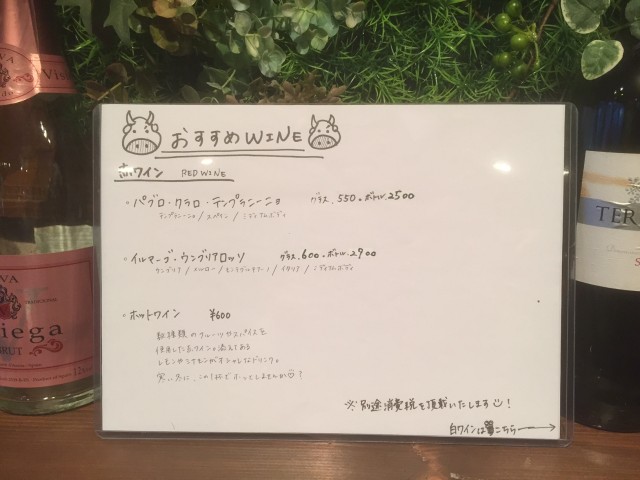 おすすめWINE
赤ワイン RED WINE
・パブロ・クラロ・テンプラニーニョ グラス.550。ボトル.2500
テンプラニーニョ / スペイン / ミディアムボディ
・イルマーゴ・ウンブリアロッソ グラス.600。ボトル.2900
/ メルロー / / イタリア / ミディアムボディ
・ホットワイン ¥600
数種類のフルーツやスパイスを
使用した赤ワイン。添えてある
レモンやシナモンがオシャレなドリンク。
寒い冬に、この1杯でホッとしませんか?
※別途消費税を頂載いたします!
白ワインはこちら→
VA
iega
BRUT
TER